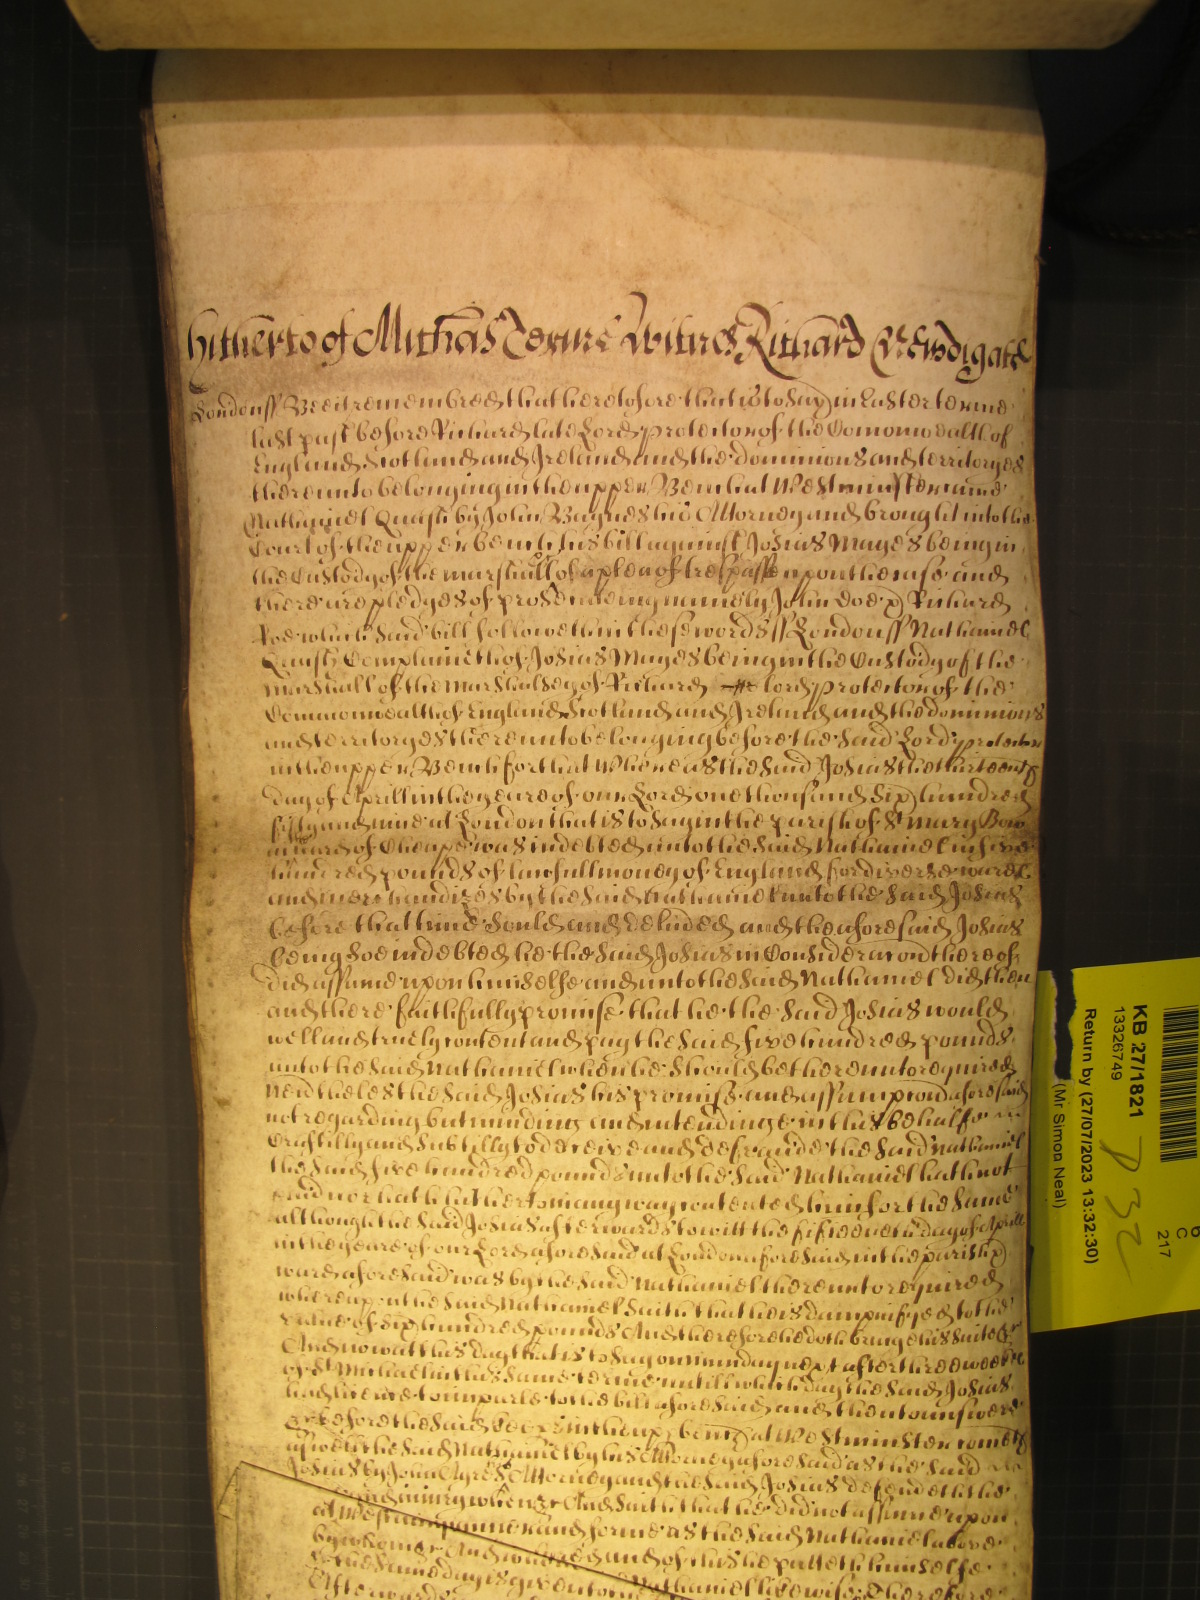 hitherto of Michas Terme Witnes Richard Newdigate
London ss Bee it remembred that heretofore that is to say in Easter terme
last past before Richard late Lord protector of the Comonwealth of
England Scotland and Ireland and the dominions and territoryes
thereunto belonging in the upper Bench at Westminster came
Nathaniel Quash by John Baynes his Attorney and brought into the
Court of the upper bench his bill against Josias Mayes being in
the Custody of the marshall of a plea of trespasse upon the case and
there are pledges of prosecuting namely John Doe & Richard
Roe which said bill followeth in these words ss London ss Nathaniel
Quash Complaineth of Josias Mayes being in the Custody of the
marshall of the marshalsey of Richard lord protector of the
Commonwealth of England Scotland and Ireland and the dominions
and territoryes thereunto belonging before the said Lord protector
in the upper Bench for that Whereas the said Josias the thirteenth
day of Aprill in the yeare of our Lord one thousand Six hundred
fifty and nine at London that is to say in the parish of St Mary Bow
in ward of Cheape was indebted unto the said Nathaniel in five
hundred pounds of lawfull money of England for diverse wares
and merchandizes by the said Nathaniel unto the said Josias
before that time sould and delivered and the aforesaid Josias
being soe indebted he the said Josias in Consideracon thereof
did assume upon himselfe and unto the said Nathaniel did then
and there faithfully promise that he the said Josias would
well and truely content and pay the said five hundred pounds
unto the said Nathaniel when he should be thereunto required
Nevertheles the said Josias his promise and assumpcon aforesaid
not regarding but minding and intendinge in this behalfe
Craftilly and Subtilly to deceive and defraude the said Nathaniel
the said five hundred pounds unto the said Nathaniel hath not
paid nor hath hitherto in any way contented him for the same
although the said Josias afterwards to witt the fifteenth day of Aprill
in the yeare of our Lord aforesaid at London aforesaid in the parish &
ward aforesaid was by the said Nathaniel thereunto required
whereupon the said Nathaniel saith that he is dampnifyed to the
value of six hundred pounds And therefore he doth bringe his suite &c
And now att this day that is to say on munday next after three weekes
of St Michael in this same terme untill which day the said Josias
had licence to imparle to the bill aforesaid and then to answere
&c before the said keepers in the upper bench at Westminster cometh
aswell the said Nathaniel by his Attorney aforesaid as the said
Josias by John Ayres Attorney and the said Josias defendeth the
and iniury when &c And saith that he did not assume upon
manner and forme as the said Nathaniel above
And of this he putteth himselfe
same day is given to Nathaniel likewise Therefore
Afterwards
KB 27/1821
13326749
Return by (27/07/2023 13:32:30)
(Mr Simon Neal)
P 32
C
217